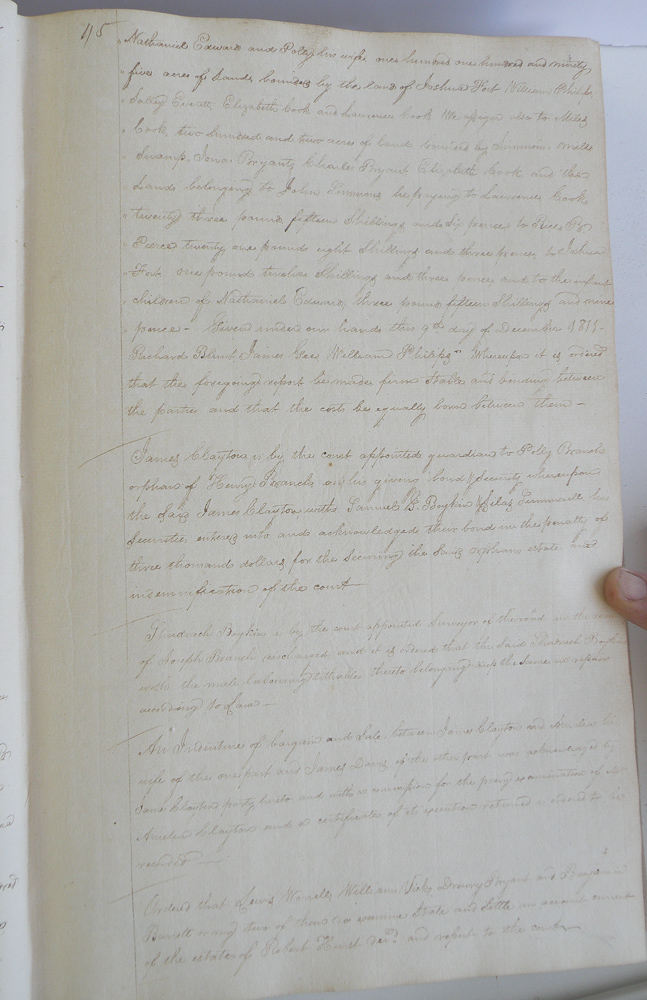 45
Nathaniel Edwards and Polly his wife one hundred one hundred and ninety
five acres of Lands bounded by the land of Joshua Fort William Philips
Everett Elizabeth Cook and Lawrence Cook We assign also to Miles
Cook two hundred and two acres of lands bounded by Simmons Mill
Swamp Bryant Charles Bryant Elizabeth Cook and the
Lands belonging to John Simmons he paying to Lawrence Cook
twenty three pounds fifteen Shillings and six pence to
Pierce twenty one pounds eight Shillings and three pence to Joshua
Fort one pound twelve Shillings and three pence and to the infant
children of Nathaniel Edwards three pound fifteen Shillings and nine
pence - Given under our hands this 9th day of December 1811 -
Richard Blunt James Gee William Philips Whereupon it is ordered
that the foregoing report be made firm Stable and binding between
the parties and that the costs be equally born between them -
James Clayton is by the court appointed guardian to Polly Branch
orphan of Henry Branch on his giving bond & Security whereupon
the said James Clayton with Samuel B. Boykin & Silas Simmons his
Securities entered into and acknowledged their bond in the penalty of
three thousand dollars for the securing the said orphans estate and
indemnification of the court
Shadrach Boykin is by the court appointed Surveyor of the road in the room
of Joseph Branch and it is ordered that the said Shadrach Boykin
with the male labouring tithables thereto belonging keep the same in repair
according to Law -
An Indenture of bargain and Sale between James Clayton and Amelia his
wife of the one part and James Davis of the other part was acknowledged by
James Clayton party hereto and with a commission for the privy examination of
Amelia Clayton and a certificate of its execution returned is ordered to be
recorded -
Ordered that Lewis Worrell William Vick Drewry Bryant and Benjamin
Barrett or any two of them do examine State and Settle an account current
of the estate of Robert Hurst decd and report to the court